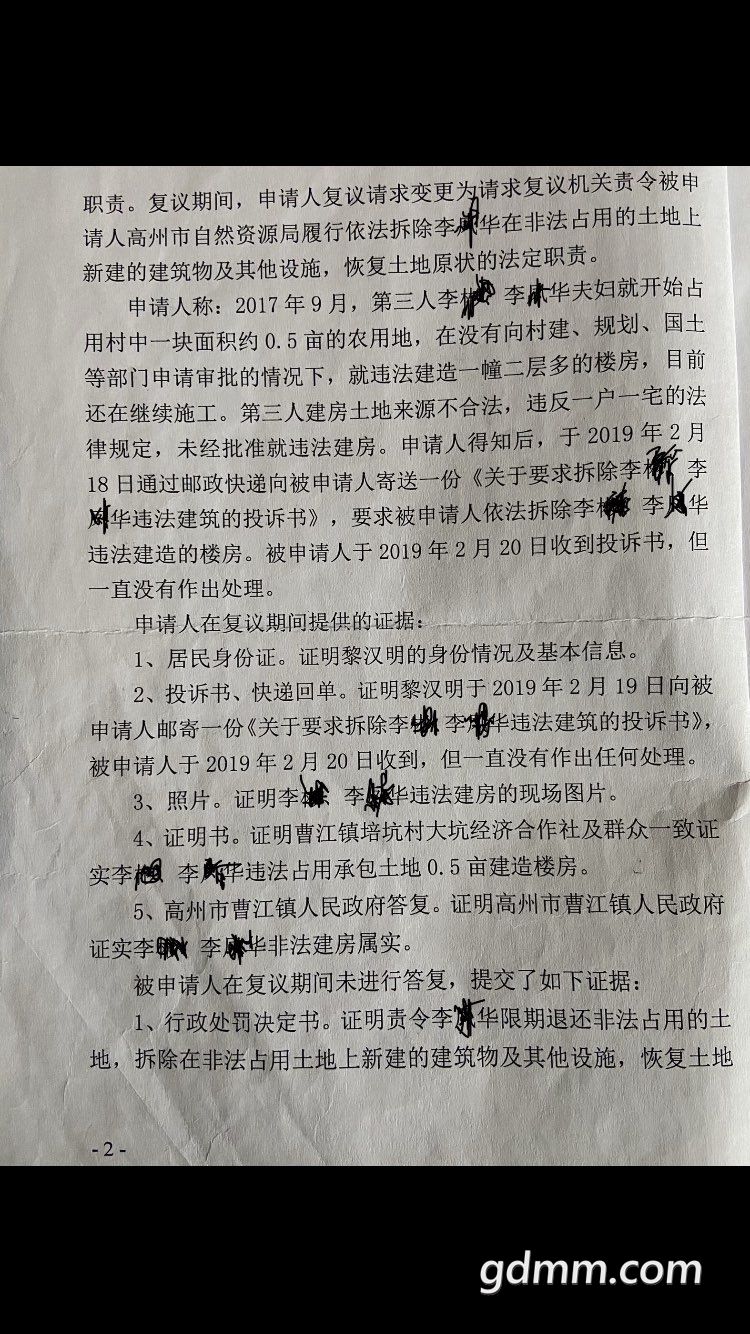 职责。复议期间，申请人复议请求变更为请求复议机关责令被申
请人高州市自然资源局履行依法拆除李华在非法占用的土地上
新建的建筑物及其他设施，恢复土地原状的法定职责。
申请人称：2017年9月，第三人李 李华夫妇就开始占
用村中一块面积约0.5亩的农用地，在没有向村建、规划、国土
等部门申请审批的情况下，就违法建造一幢二层多的楼房，目前
还在继续施工。第三人建房土地来源不合法，违反一户一宅的法
律规定，未经批准就违法建房。申请人得知后，于2019年2月
18日通过邮政快递向被申请人寄送一份《关于要求拆除李 李
华违法建筑的投诉书》，要求被申请人依法拆除李 李华
违法建造的楼房。被申请人于2019年2月20日收到投诉书，但
一直没有作出处理。
申请人在复议期间提供的证据：
1、居民身份证。证明黎汉明的身份情况及基本信息。
2、投诉书、快递回单。证明黎汉明于2019年2月19日向被
申请人邮寄一份《关于要求拆除李 李华违法建筑的投诉书》，
被申请人于2019年2月20日收到，但一直没有作出任何处理。
3、照片。证明李 李华违法建房的现场图片。
4、证明书。证明曹江镇培坑村大坑经济合作社及群众一致证
实李 李华违法占用承包土地0.5亩建造楼房。
5、高州市曹江镇人民政府答复。证明高州市曹江镇人民政府
证实李 李华非法建房属实。
被申请人在复议期间未进行答复，提交了如下证据：
1、行政处罚决定书。证明责令李华限期退还非法占用的土
地，拆除在非法占用土地上新建的建筑物及其他设施，恢复土地
- 2 -
gdmm.com